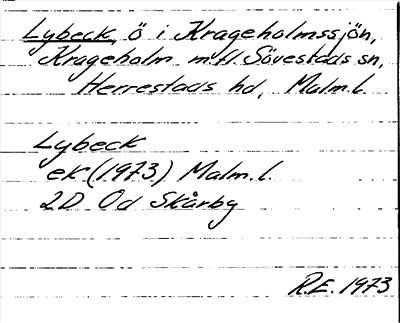 Lybeck, ö i Krageholmssjön,
Krageholm m.fl. Sövestads sn,
Herrestads hd, Malm.l.
Lybeck
ek. (1973) Malm.l.
2D Od Skårby
R.E. 1973